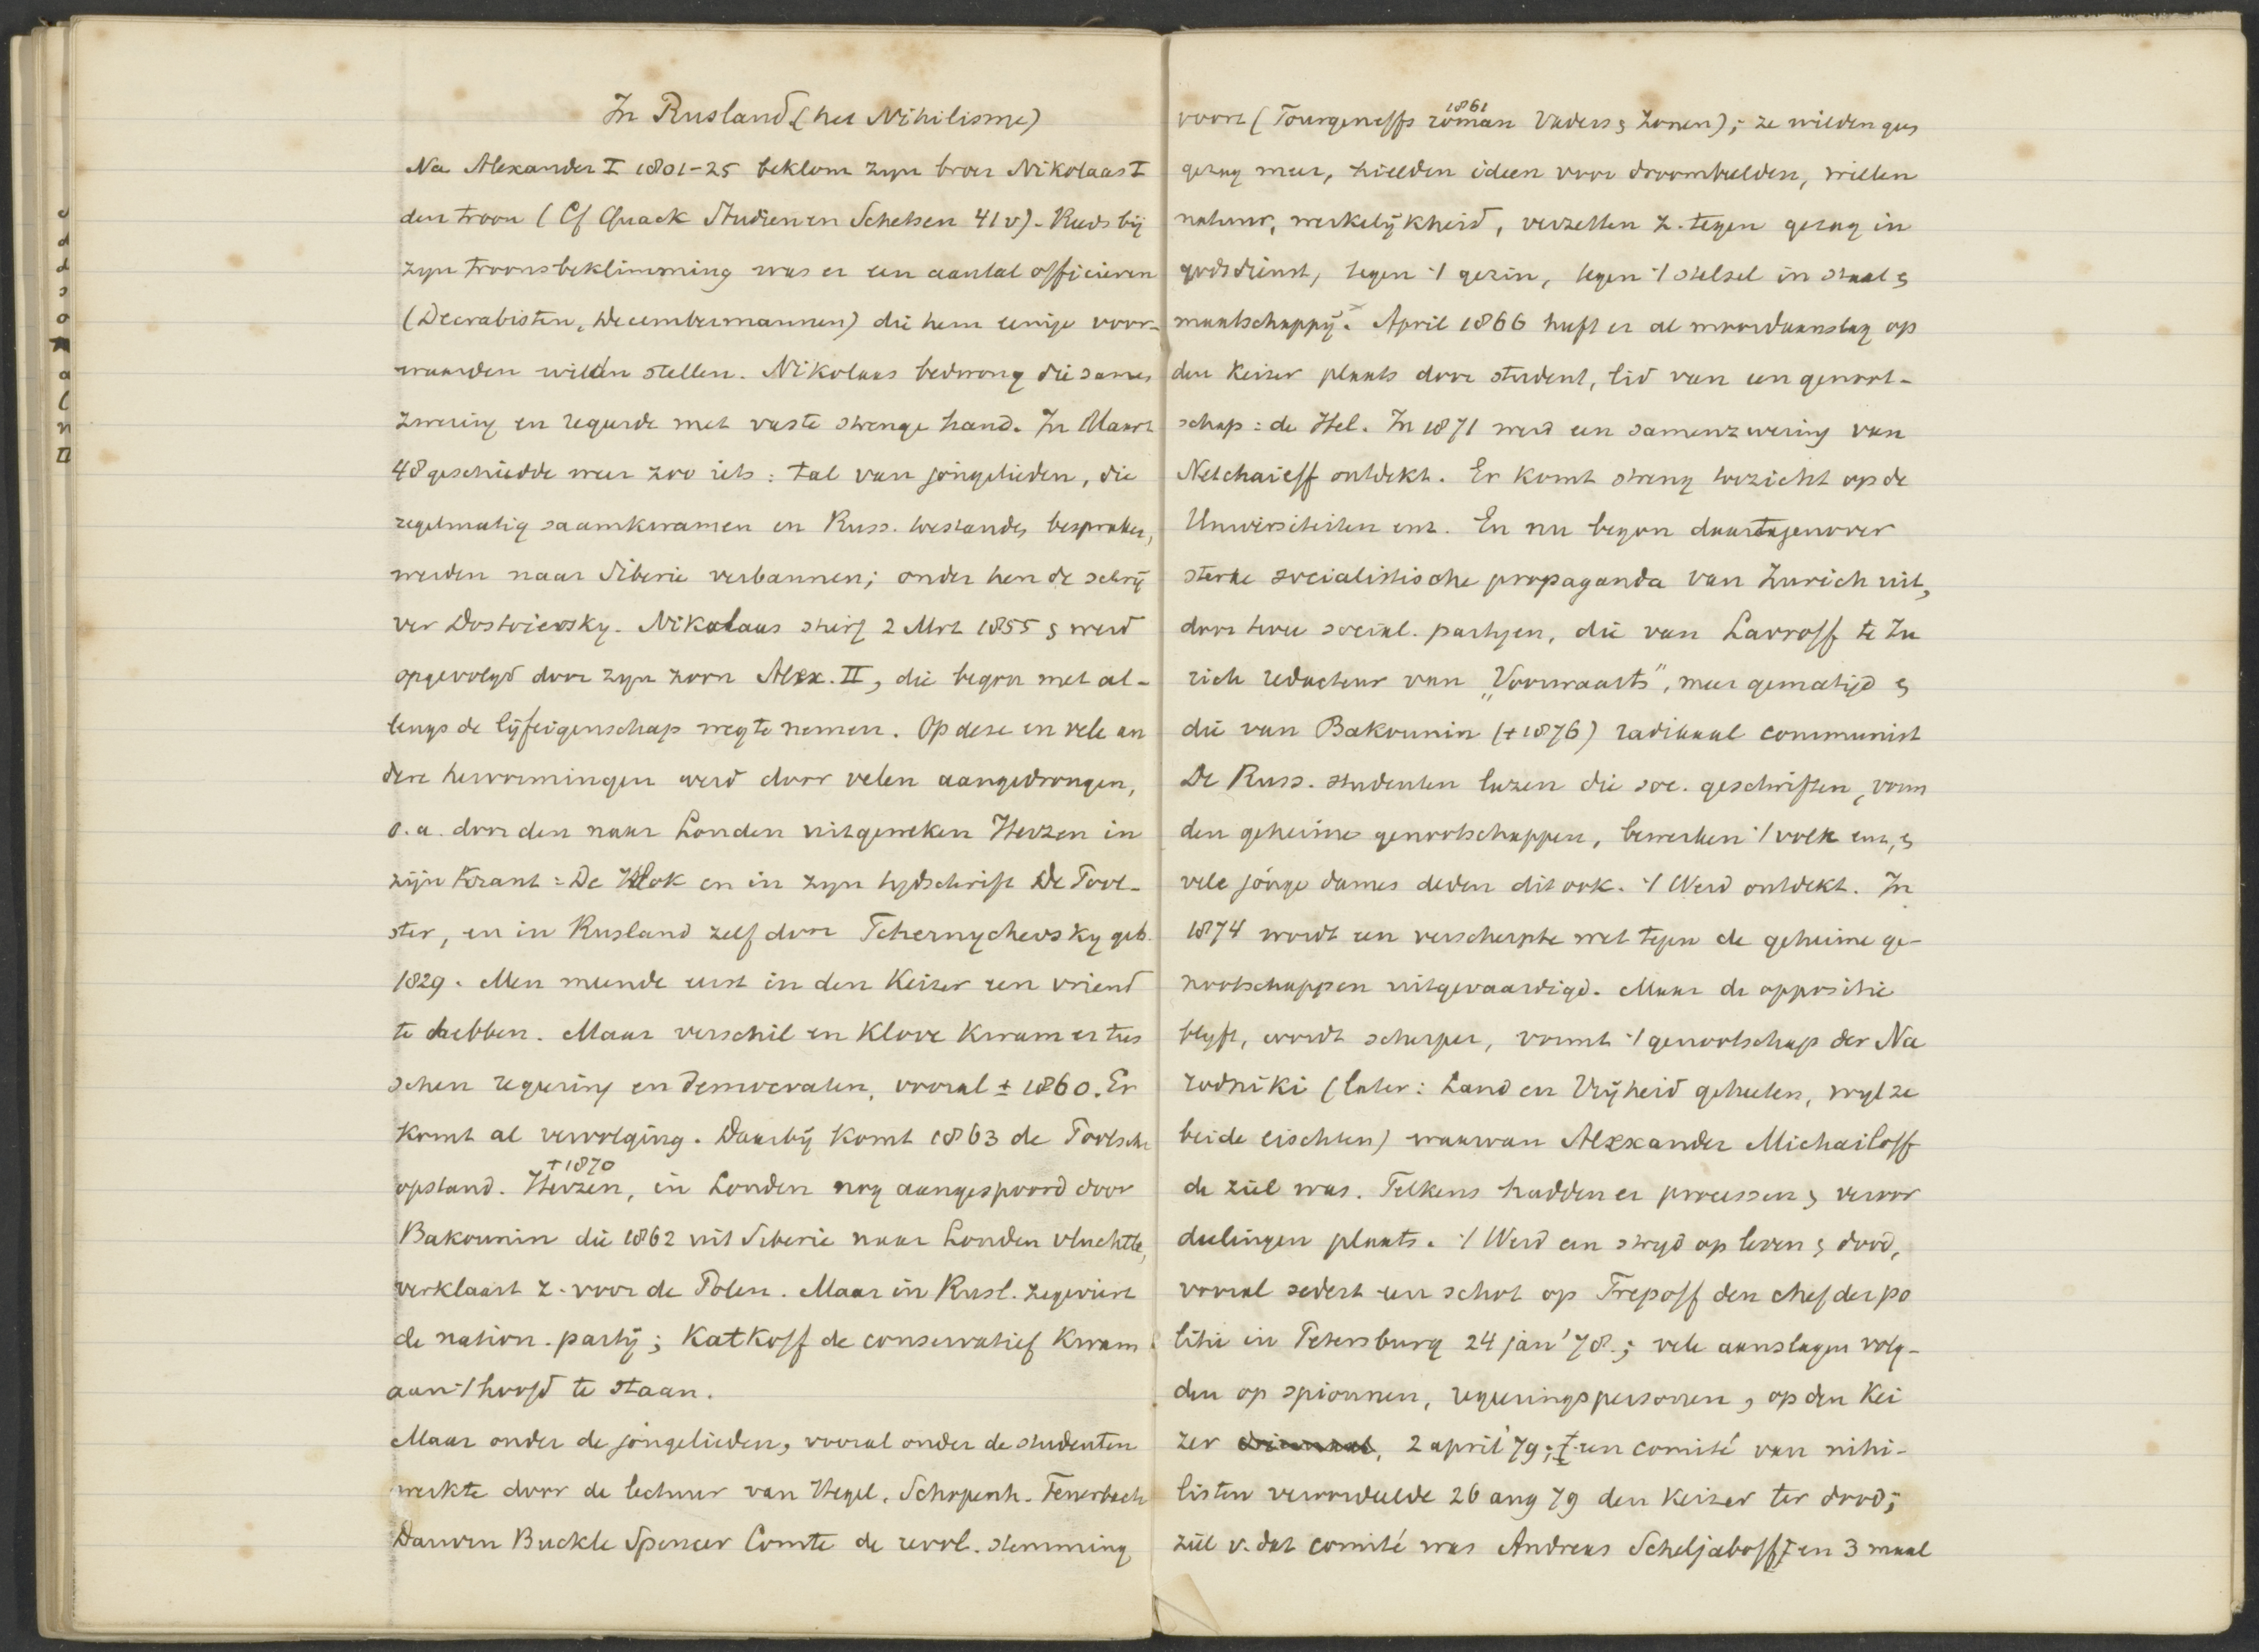 In Rusland (het Nihilisme)
Na Alexander I 1801-25 beklom zyn broer Nikolaas I
den troon (Cf Quack Studien en Schetsen 41v). Reeds bij
zyn troonsbeklimming was er een aantal officieren
(Decrabisten, Decembermannen) die hem eenige voor-
waarden wilden stellen. Nikolaas bedwong die samen
zwering en regeerde met vaste strenge hand. In Maart
48 geschiedde weer zoo iets: tal van jongelieden, die
regelmatig saamkwamen en Russ. toestanden bespraken,
werden naar Siberie verbannen; onder hen de schrij
ver Dostoievsky. Nikolaas stierf 2 Mrt 1855 & werd
opgevolgd door zyn zoon Alex. II, die begon met al-
lengs de lijfeigenschap weg te nemen. Op deze en vele an
dere hervormingen werd door velen aangedrongen,
o.a. door den naar Londen uitgeweken Herzen in
zijn krant: De Klok en in zyn tydschrift De Pool-
ster, en in Rusland zelf door Tchernychevsky geb.
1829. Men meende eerst in den Keizer een vriend
te hebben. Maar verschil en klove kwam er tus
schen regeering en democraten, vooral ± 1860. Er
komt al vervolging. Daarbij komt 1863 de Poolsche
opstand. Herzen, in Londen nog aangespoord door
†1870
Bakounin die 1862 uit Siberie naar Londen vluchtte,
verklaart z. voor de Polen. Maar in Rusl. zegeviert
de nation. partij; Katkoff de conservatief kwam
aan 't hoofd te staan.
Maar onder de jongelieden, vooral onder de studenten
werkte door de lectuur van Hegel, Schopenh. Feuerbach
Darwin Buckle Spencer Comte de revol. stemming
voort (Tourgeneffs roman Vaders & Zonen); ze wilden geen
1861
gezag meer, hielden ideen voor droombeelden, wilden
natuur, werkelijkheid, verzetten z. tegen gezag in
godsdienst, tegen 't gezin, tegen 't stelsel in staat &
maatschappij. April 1866 heeft er al moordaanslag op
den Keizer plaats door student, lid van een genoot-
schap: de Hel. In 1871 werd een samenzwering van
Netchaieff ontdekt. Er komt streng toezicht op de
Universiteiten enz. En nu begon daartegenover
sterke socialistische propaganda van Zurich uit,
door twee social. partyen, die van Lavroff te Zu
rich redacteur van „Voorwaarts", meer gematigd &
die van Bakounin (†1876) radikaal communist
De Russ. studenten lazen die soc. geschriften, vorm
den geheime genootschappen, bewerkten 't volk enz, &
vele jonge dames deden dit ook. 't Werd ontdekt. In
1874 wordt een verscherpte wet tegen de geheime ge-
nootschappen uitgevaardigd. Maar de oppositie
blyft, wordt scherper, vormt 't genootschap der Na
rodniki (later: Land en Vrijheid geheeten, wyl ze
beide eischten) waarvan Alexander Michailoff
de ziel was. Telkens hadden er processen & veroor
deelingen plaats. 't Werd een stryd op leven & dood,
vooral sedert een schot op Trepoff den chef der po
litie in Petersburg 24 jan '78.; vele aanslagen volg-
den op spionnen, regeeringspersonen, op den Kei
zer 2 april '79; een comité van nihi-
listen veroordeelde 26 aug 79 den Keizer ter dood;
ziel v. dat comité was Andreas Scheljaboff en 3 maal